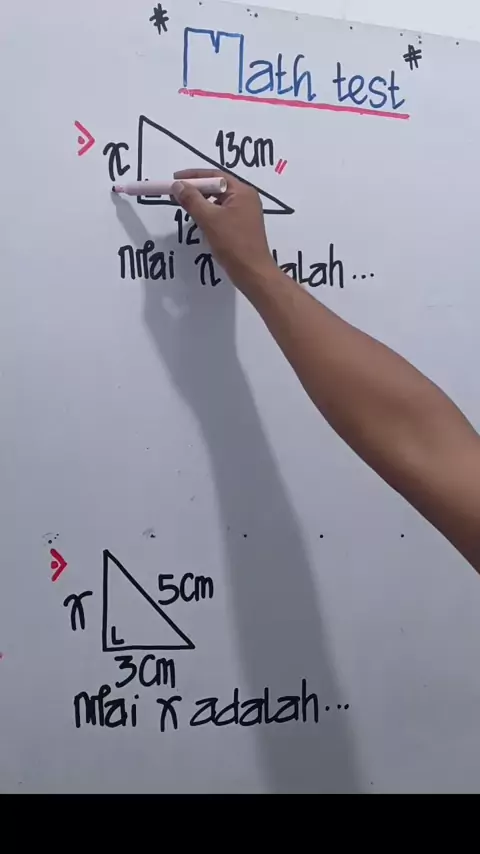 * Math test *
x
13cm
12
Nilai x
x
5cm
3cm
Nilai x adalah...